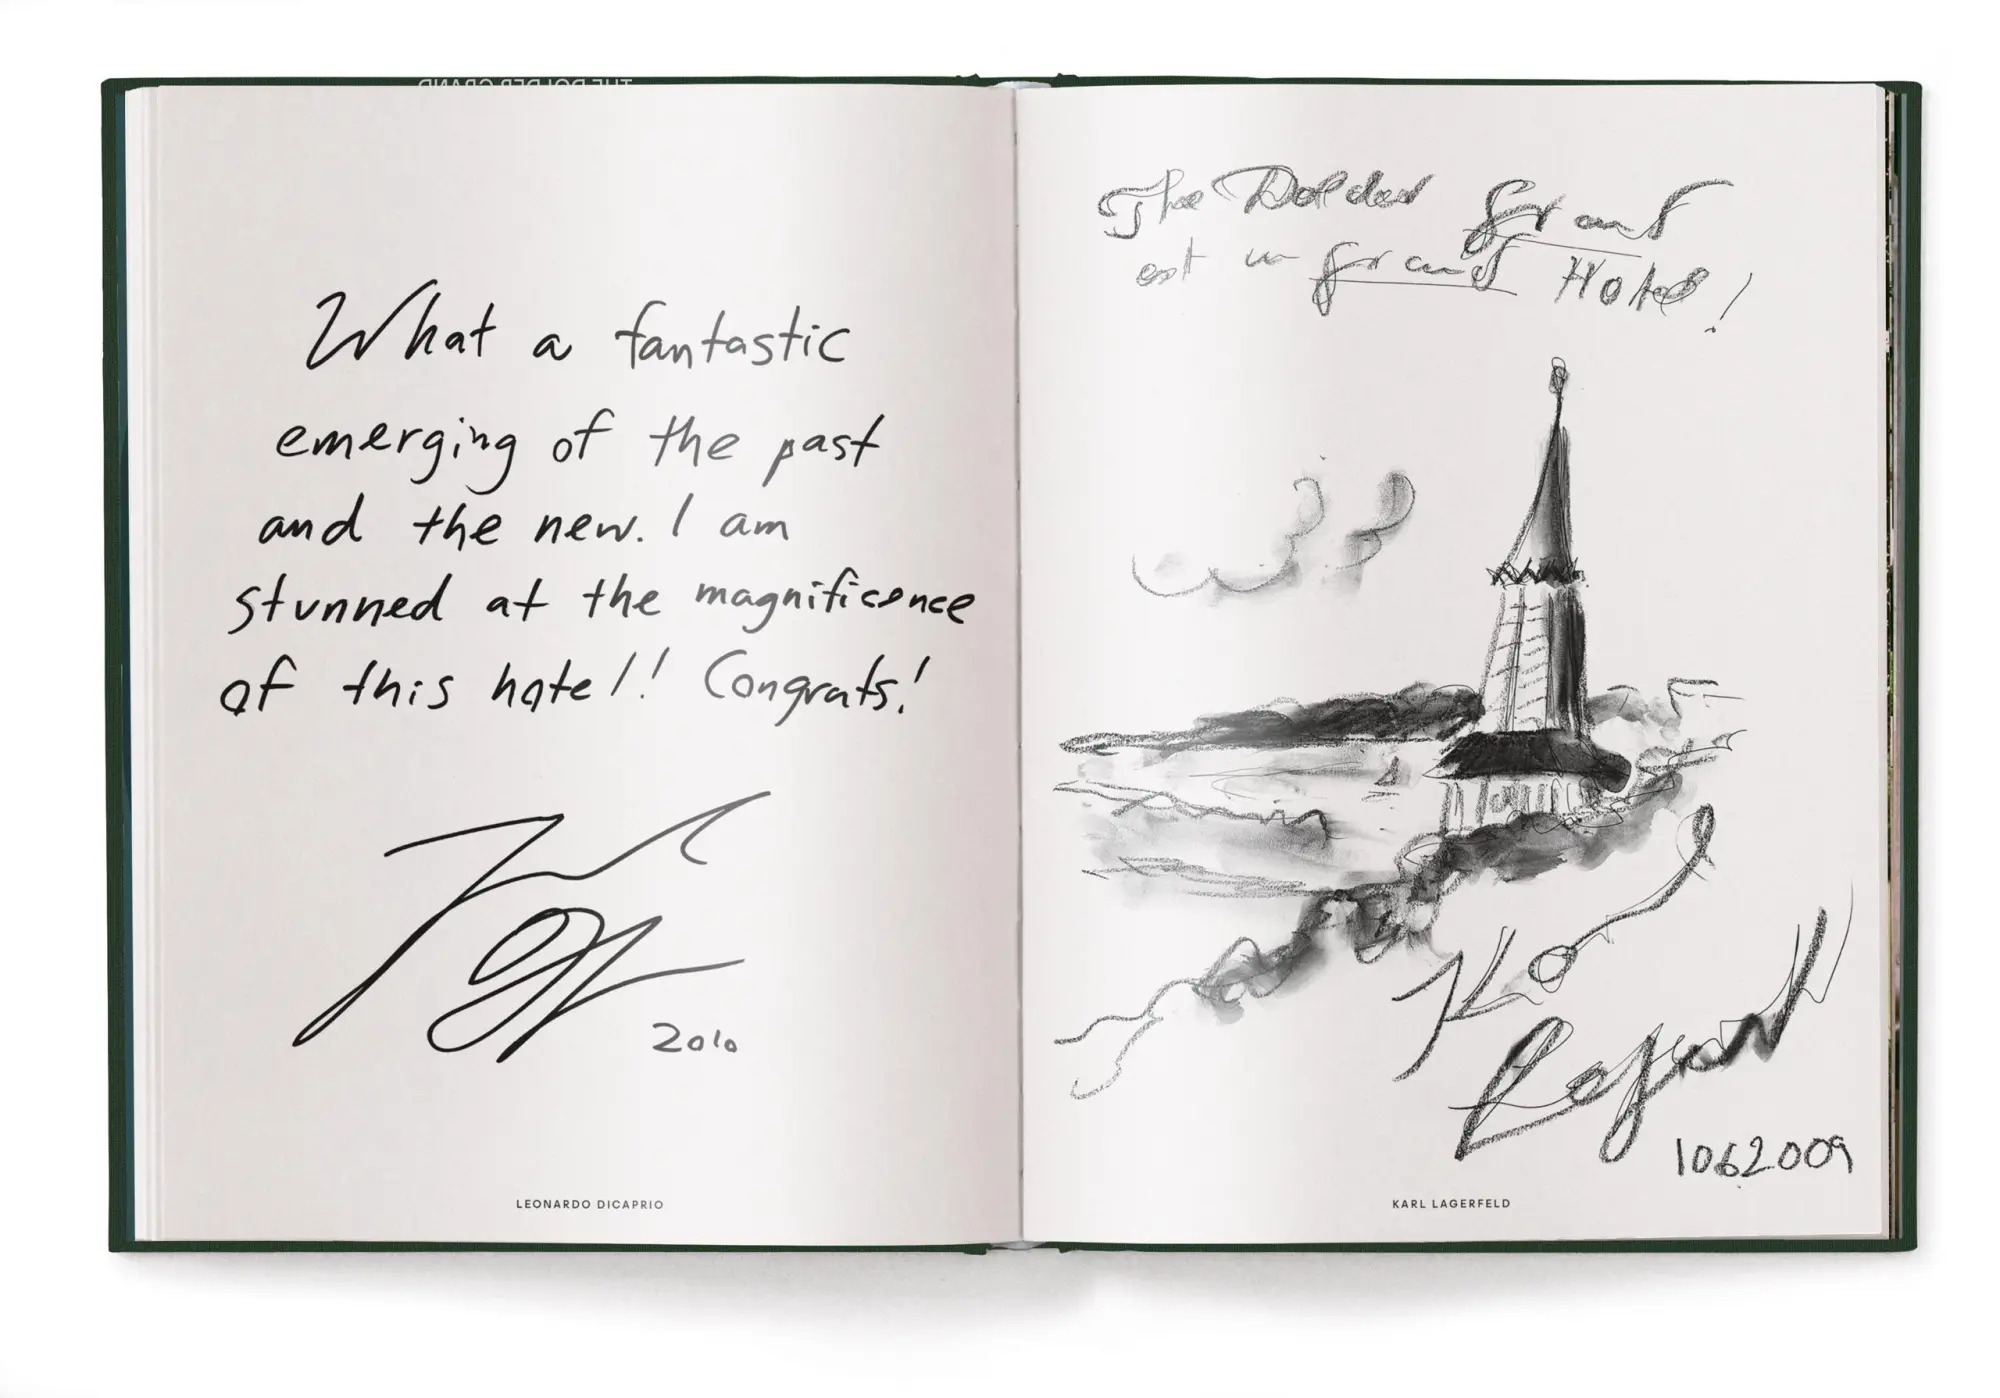 What a fantastic
emerging of the past
and the new. I am
stunned at the magnificence
of this hotel! Congrats!
2010
LEONARDO DICAPRIO
The Dolder Grand
est un grand Hotel!
Karl
Lagerfeld
1062009
KARL LAGERFELD